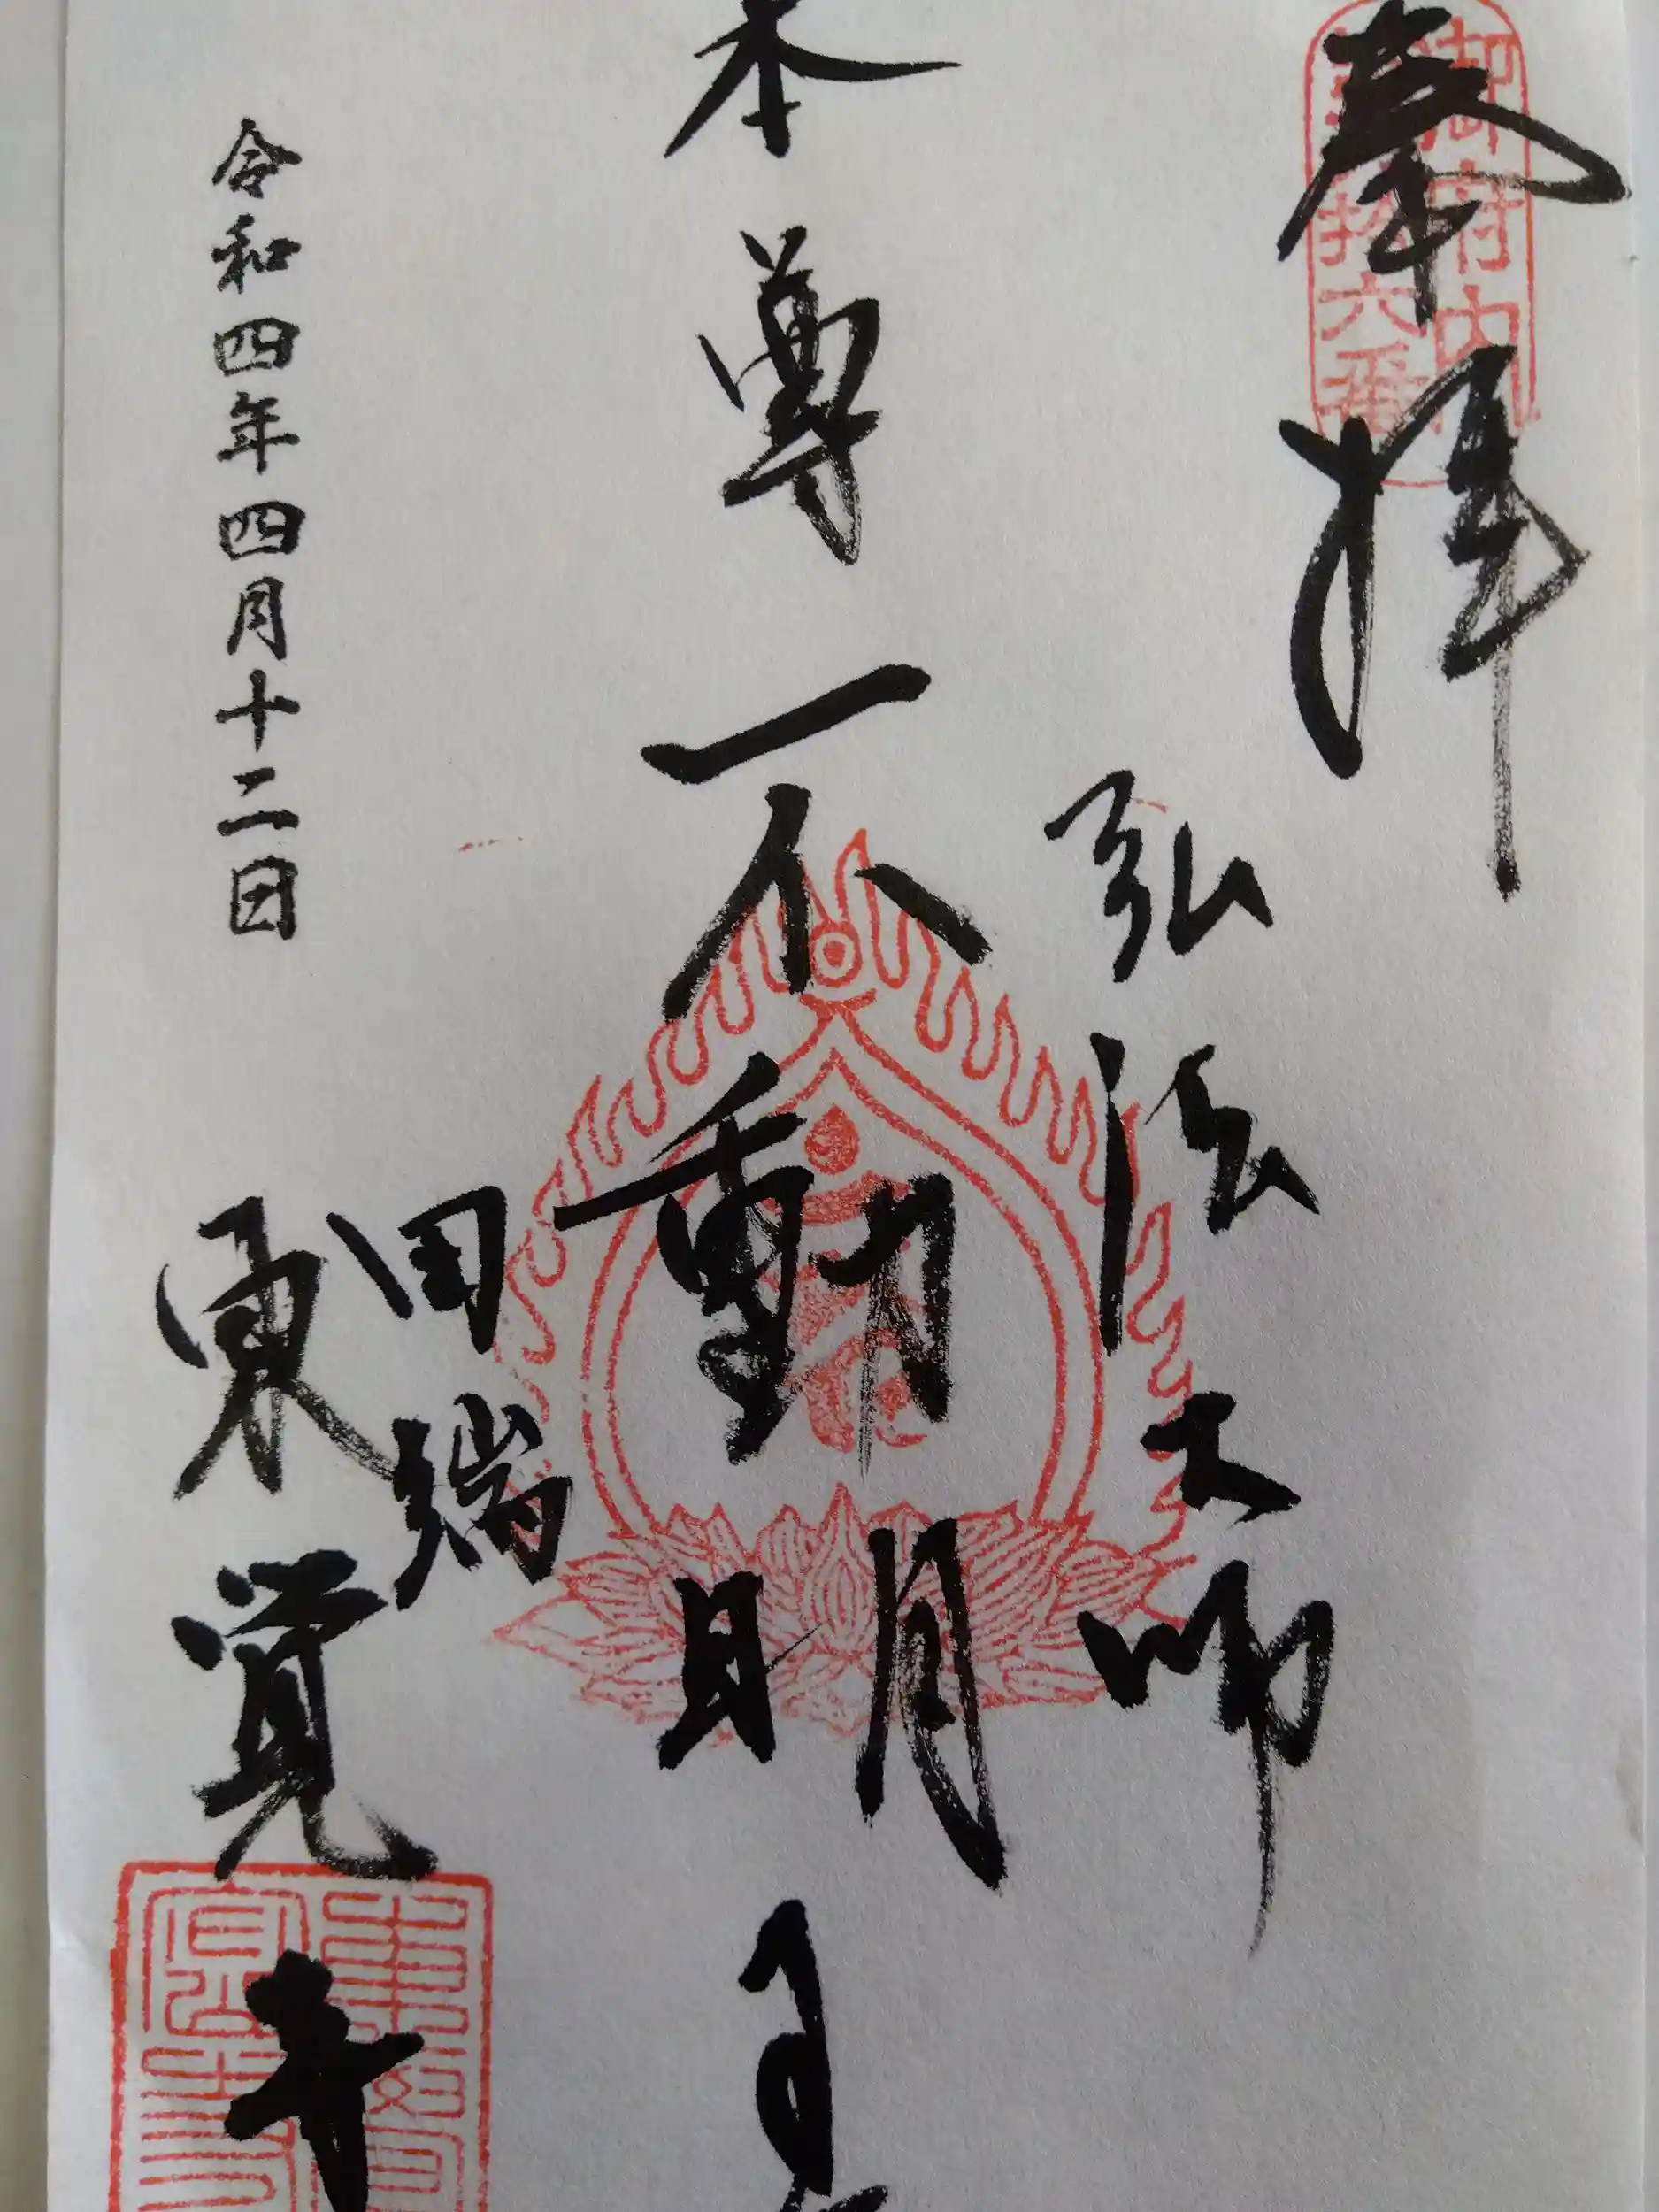 奉拝
御府内
六十六番
弘法大師
本尊不動明王
田端
東覚寺
令和四年四月十二日